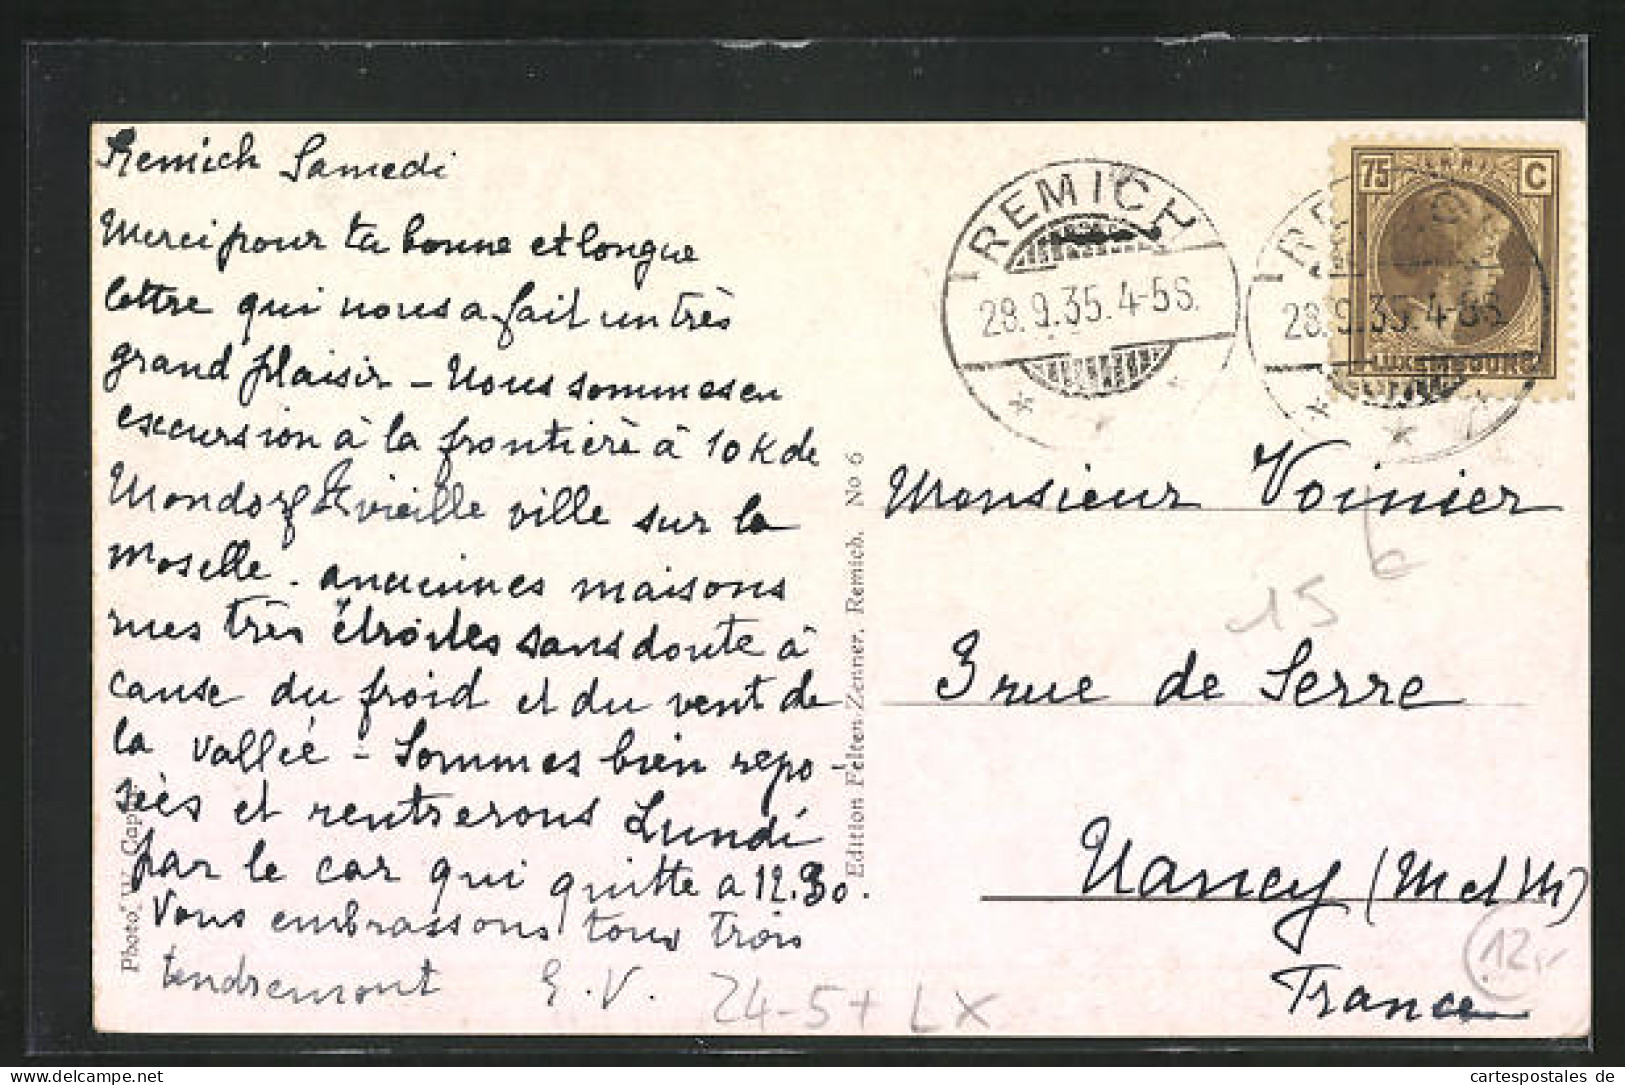 Remich Samedi
Merci pour ta bonne et longue
lettre qui nous a fait un très
grand plaisir - Nous sommes en
excursion à la frontière à 10 K de
Mondorf vieille ville sur la
Moselle. anciennes maisons
rues très étroites sans doute à
cause du froid et du vent de
la vallée - Sommes bien repo-
sées et rentrerons Lundi
par le car qui quitte a 12.30.
Vous embrassons tous trois
tendrement E.V.
24-5+ LX
Photo. W. Cap
Edition Felten-Zenner, Remich. No 6
REMICH
28.9.35.4-5S.
REMICH
28.9.35.4-5S.
75 C
LUXEMBOURG
Monsieur Voinier
15
3 rue de Serre
Nancy (M et M)
France
12,-
cartespostales de